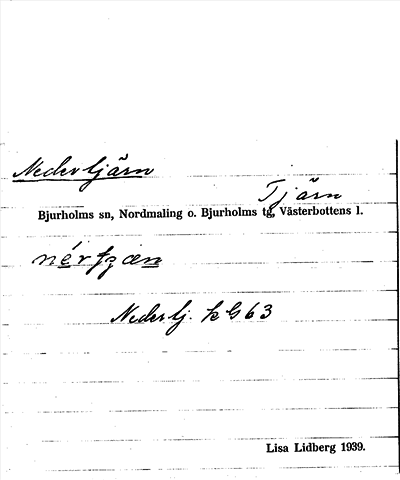 Nedertjärn
Tjärn
Bjurholms sn, Nordmaling o. Bjurholms tg, Västerbottens l.
Nedertj. kG63
Lisa Lidberg 1939.